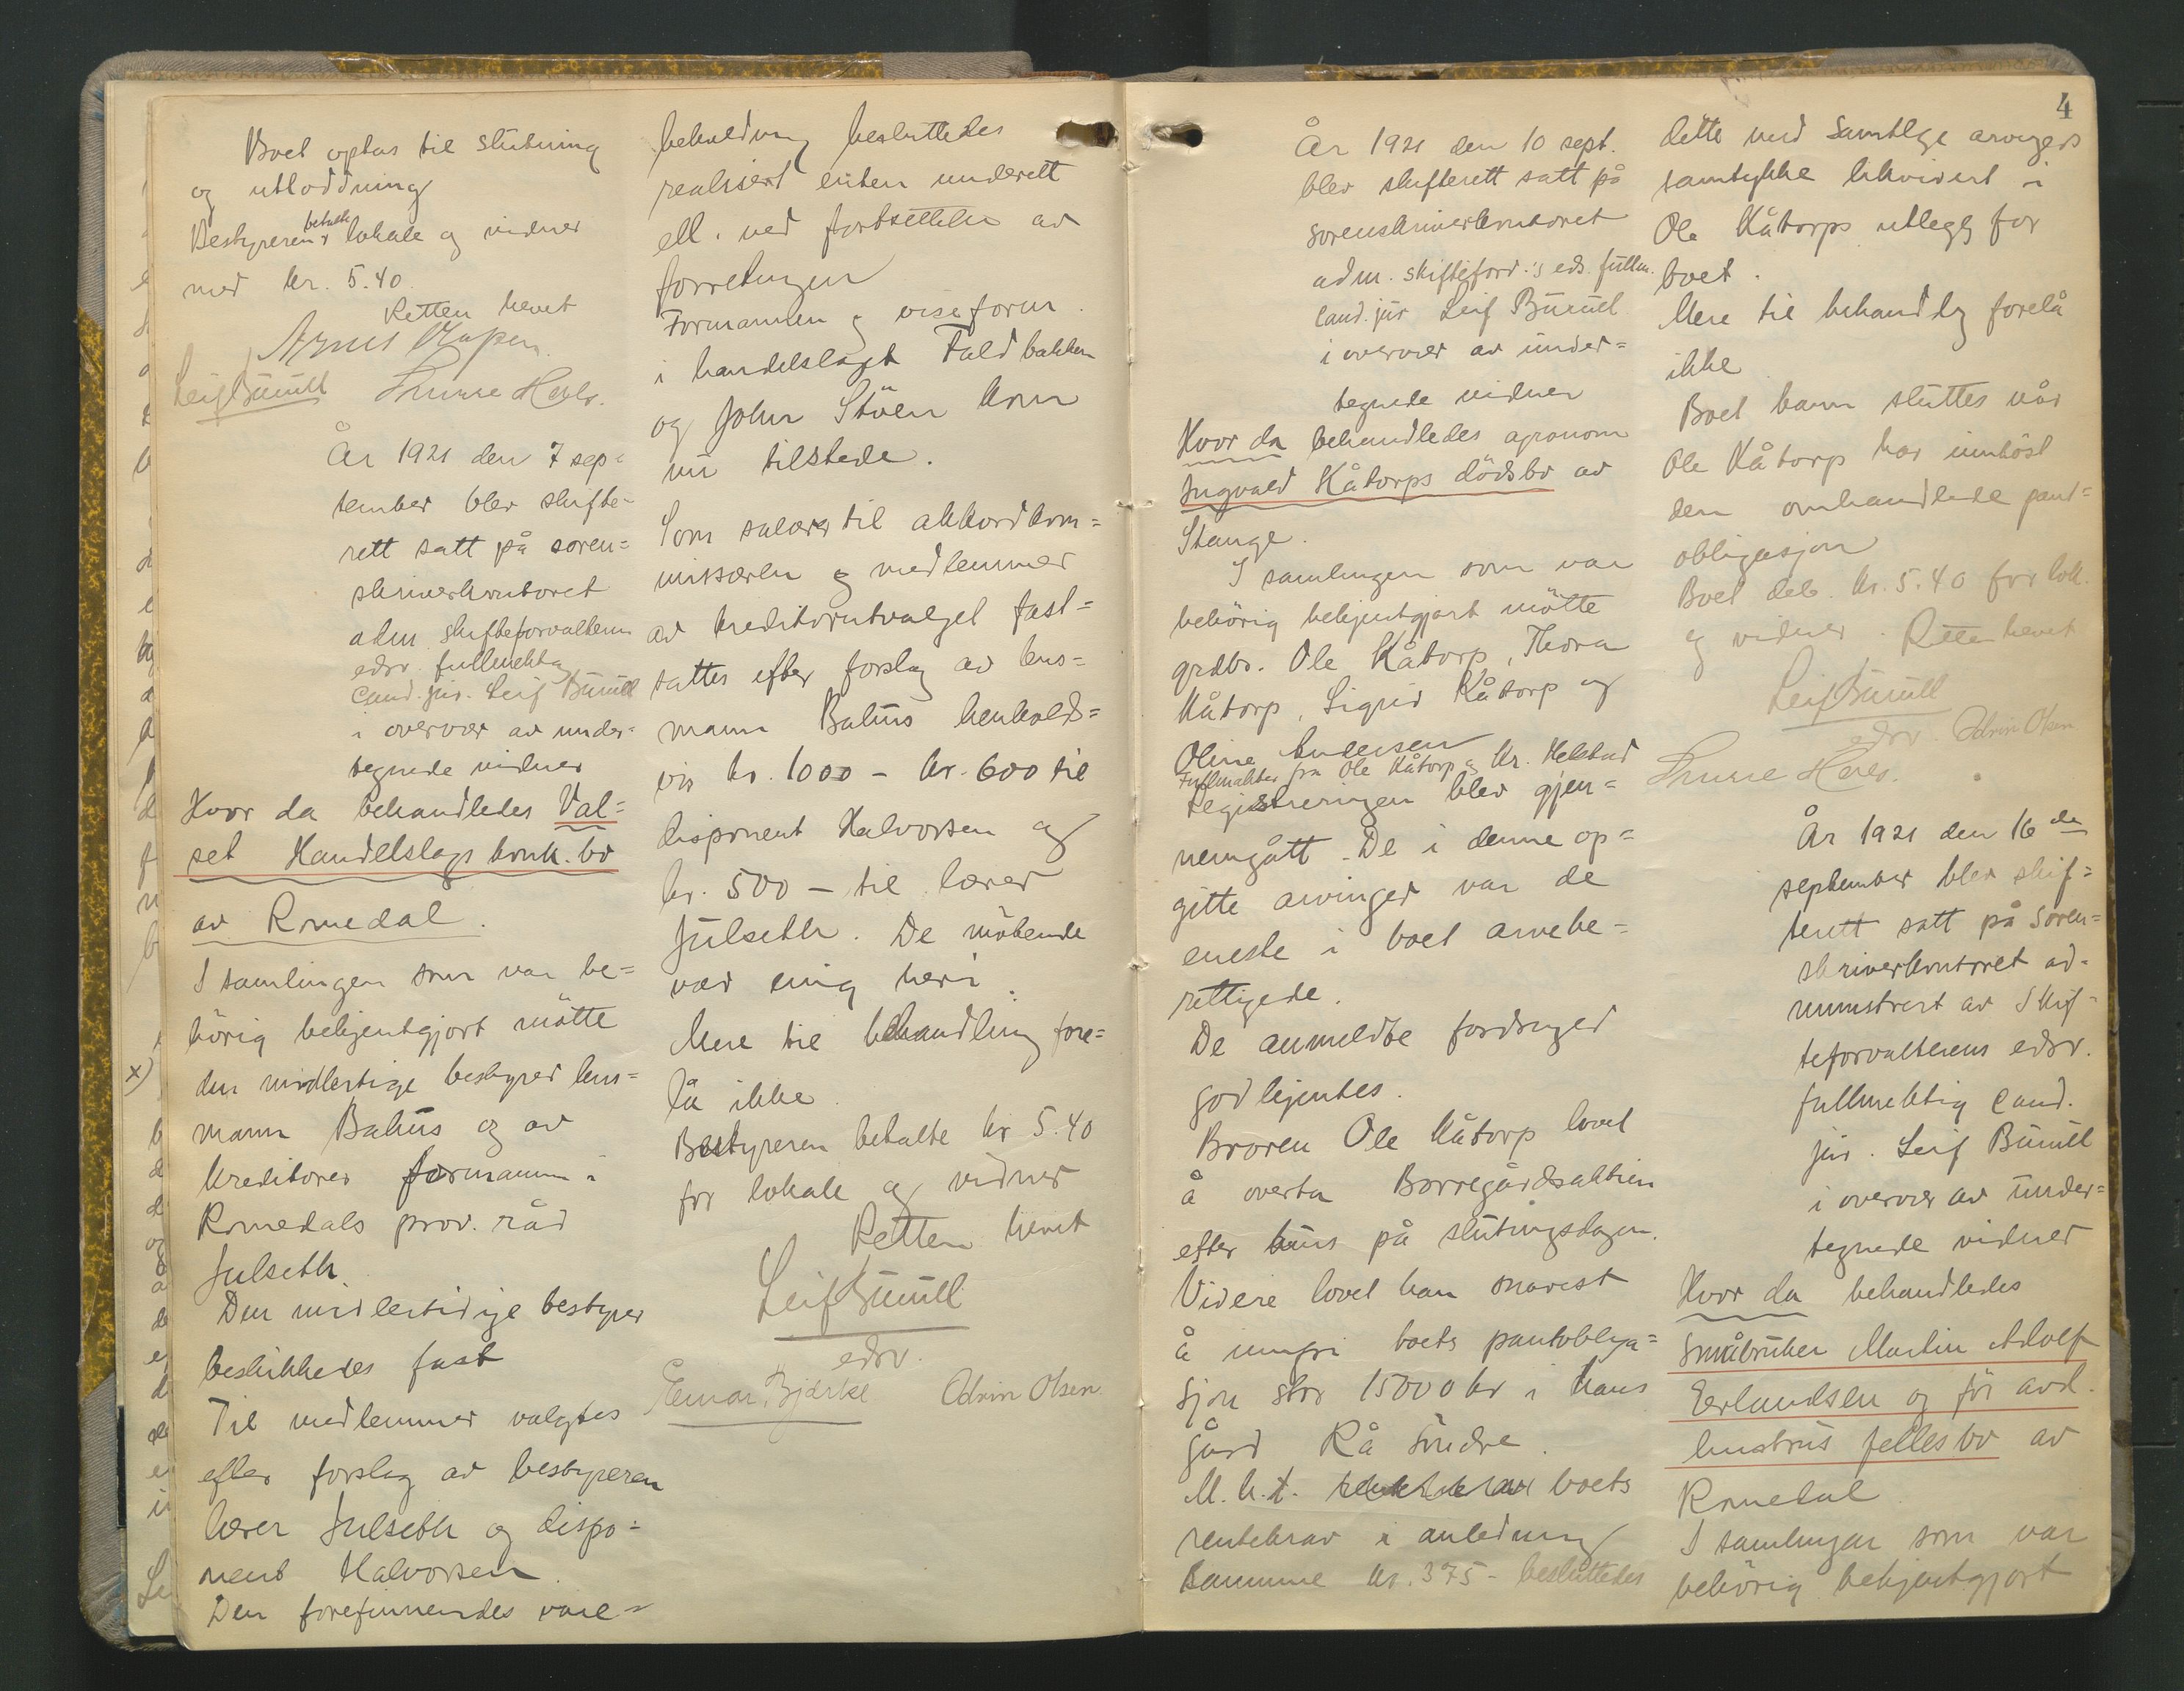 Boet optas til slutning
og utloddning
Bestyreren betalte lokale og vidner
med kr. 5.40.
Retten hevet
Leif Bűrűll
År 1921 den 7 sep=
tember blev skifte=
rett satt på soren=
skriverkontoret
adm. skifteforvalterens
edsv. fullmektig
cand. jur. Leif Bűrűll
i overvær av under=
tegnede vidner
Hvor da behandledes Val=
set Handelslags konk. bo
av Romedal.
I samlingen som var be=
hörig bekjentgjort mötte
x) den midlertige bestyrer lens=
mann Bahus og av
kreditorer formannen i
Romedals prov. råd
Julseth.
Den midlertidige bestyrer
beskikkedes fast
Til medlemmer valgtes
efter forslag av bestyreren
lærer Julseth og dispo=
nent Halvorsen.
Den forefinnendes vare=
beholdning besluttedes
realisert enten underett
ell. ved fortsettelse av
forretningen
Formannen og viseform.
i handelslaget Faldbakken
og John Stöen kom
nu tilstede.
Som salær til akkordkom=
missæren og medlemmer
av kreditorutvalget fast=
sattes efter forslag av lens=
mann Bahus henholds=
vis kr. 1000 - kr. 600 til
disponent Halvorsen og
kr. 500 - til lærer
Julseth. De mötende
var enig heri.
Mere til behandling fore=
lå ikke.
Bestyreren betalte kr 5.40
for lokale og vidner
Retten hevet
Leif Bűrűll
edsv.
Einar Bjerke Odvin Olsen
4
År 1921 den 10 sept.
blev skifterett satt på
sorenskriverkontoret
adm. skifteforv.'s eds. fullm.
cand. jur Leif Bűrűll
i overvær av under=
tegnede vidner
Hvor da behandledes agronom
Ingvald Kåtorps dödsbo av
Stange.
I samlingen som var
behörig bekjentgjort mötte
grdbr. Ole Kåtorp, Thora
Kåtorp, Sigrid Kåtorp og
Oline Andersen
Fullmakter fra Ole Kåtorp og Kr. Helstad
Registreringen blev gjen=
nemgått. De i denne op=
gitte arvinger var de
eneste i boet arvebe=
rettigede.
De anmeldte fordringer
godkjentes.
Broren Ole Kåtorp lovet
å overta Borregårdsaktien
efter kurs på slutningsdagen.
Videre lovet han snarest
å innfri boets pantobliga=
sjon stor 15000 kr i hans
gård Rå söndre.
M.h.t. boets
rentekrav i anledning
samme kr. 375 - besluttedes
dette med samtlige arvingers
samtykke likvidert i
Ole Kåtorps utlegg for
boet.
Mere til behandling forelå
ikke
Boet kann sluttes når
Ole Kåtorp har innlöst
den omhandlede pant=
obligasjon
Boet deb. kr. 5.40 for lok.
og vidner. Retten hevet
Leif Bűrűll
edsv. Odvin Olsen
År 1921 den 16 de
september blev skif=
terett satt på soren=
skriverkontoret ad=
ministrert av Skif=
teforvalterens edsv.
fullmektig cand.
jur. Leif Bűrűll
i overvær av under=
tegnede vidner
Hvor da behandledes
Småbruker Martin Adolf
Erlandsen og för avd.
hustrus fellesbo av
Romedal
I samlingen som var
behörig bekjentgjort